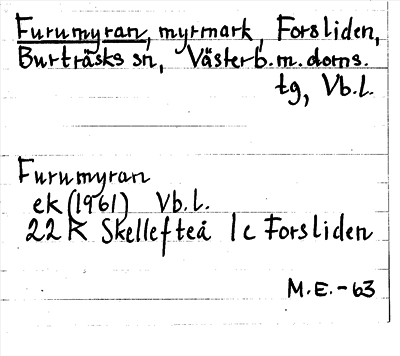 Furumyran, myrmark, Forsliden,
Burträsks sn, Västerb.m.doms.
tg, Vb.l.
Furumyran
ek (1961) Vb.l.
22 K Skellefteå 1c Forsliden
M.E.-63